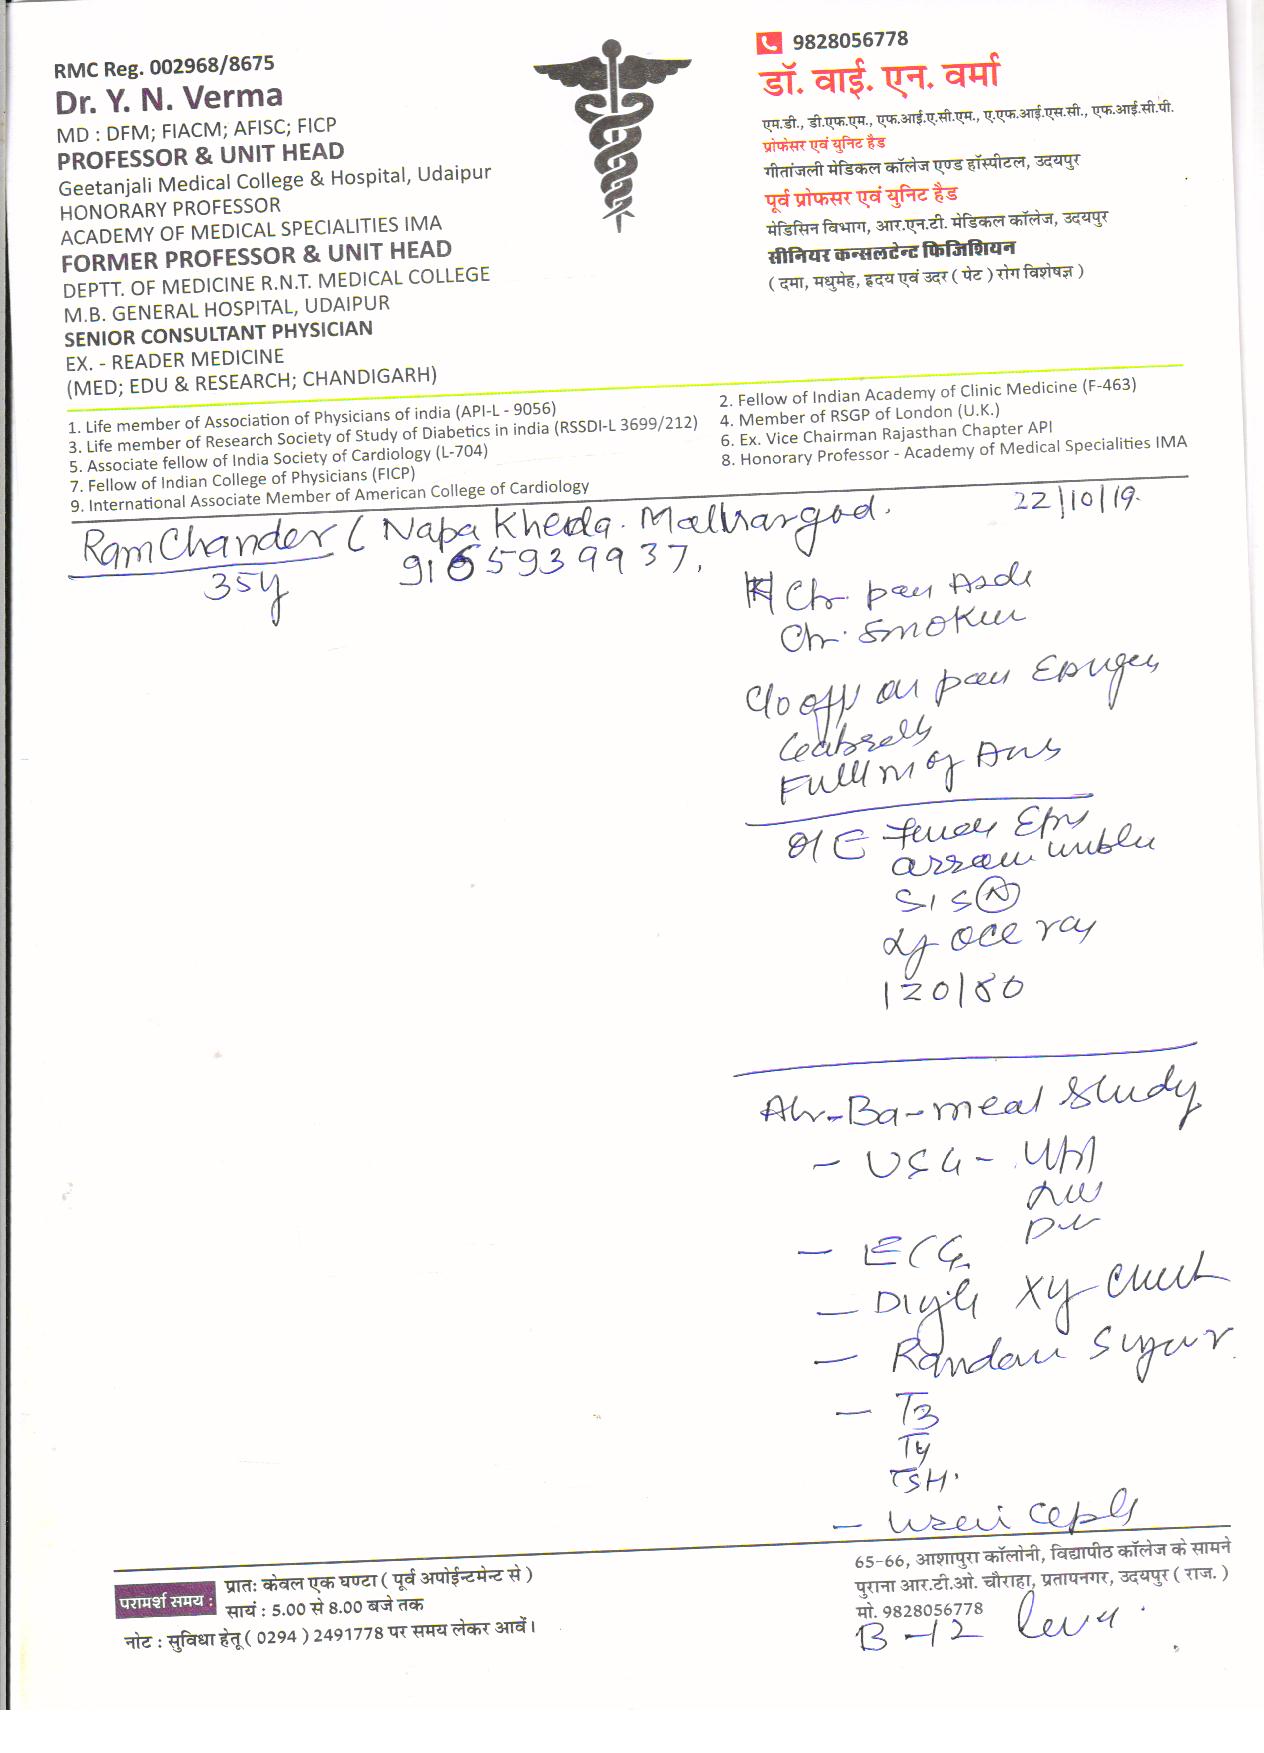 RMC Reg. 002968/8675
Dr. Y. N. Verma
MD : DFM; FIACM; AFISC; FICP
PROFESSOR & UNIT HEAD
Geetanjali Medical College & Hospital, Udaipur
HONORARY PROFESSOR
ACADEMY OF MEDICAL SPECIALITIES IMA
FORMER PROFESSOR & UNIT HEAD
DEPTT. OF MEDICINE R.N.T. MEDICAL COLLEGE
M.B. GENERAL HOSPITAL, UDAIPUR
SENIOR CONSULTANT PHYSICIAN
EX. - READER MEDICINE
(MED; EDU & RESEARCH; CHANDIGARH)
9828056778
डॉ. वाई. एन. वर्मा
एम.डी., डी.एफ.एम., एफ.आई.ए.सी.एम., ए.एफ.आई.एस.सी., एफ.आई.सी.पी.
प्रोफेसर एवं युनिट हैड
गीतांजली मेडिकल कॉलेज एण्ड हॉस्पीटल, उदयपुर
पूर्व प्रोफसर एवं युनिट हैड
मेडिसिन विभाग, आर.एन.टी. मेडिकल कॉलेज, उदयपुर
सीनियर कन्सलटेन्ट फिजिशियन
( दमा, मधुमेह, हृदय एवं उदर ( पेट ) रोग विशेषज्ञ )
1. Life member of Association of Physicians of india (API-L - 9056)
2. Fellow of Indian Academy of Clinic Medicine (F-463)
3. Life member of Research Society of Study of Diabetics in india (RSSDI-L 3699/212)
4. Member of RSGP of London (U.K.)
5. Associate fellow of India Society of Cardiology (L-704)
6. Ex. Vice Chairman Rajasthan Chapter API
7. Fellow of Indian College of Physicians (FICP)
8. Honorary Professor - Academy of Medical Specialities IMA
9. International Associate Member of American College of Cardiology
22/10/19.
Ram Chander ( Napa Kheda. Malhargad.
35y 9165939937.
Ch. pain
Ch. Smoker
C/o off on pain
of
O/E
S1 S2 (N)
120/80
Adv-Ba-meal Study
- USG -
- ECG
- Xy Chest
- Random Sugar
- T3
T4
TSH.
-
B-12 level
परामर्श समय :
प्रातः केवल एक घण्टा ( पूर्व अपोईन्टमेन्ट से )
सायं : 5.00 से 8.00 बजे तक
नोट : सुविधा हेतू ( 0294 ) 2491778 पर समय लेकर आवें।
65-66, आशापुरा कॉलोनी, विद्यापीठ कॉलेज के सामने
पुराना आर.टी.ओ. चौराहा, प्रतापनगर, उदयपुर ( राज. )
मो. 9828056778